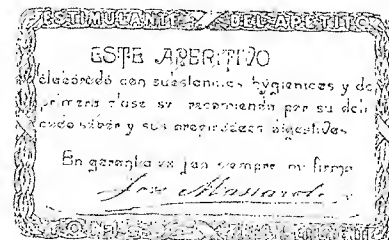 ESTIMULANTE DEL APETITO
ESTE APERITIVO
elaborado con substancias hygienicas y de
primera clase se recomienda por su deli
cado sabor y sus propiedades digestivas
En garantia va jan siempre mi firma
Jose